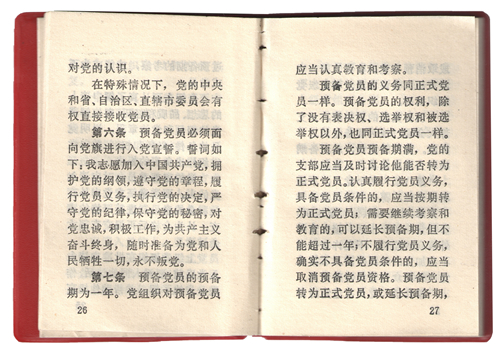 对党的认识。
在特殊情况下，党的中央
和省、自治区、直辖市委员会有
权直接接收党员。
第六条 预备党员必须面
向党旗进行入党宣誓。誓词如
下：我志愿加入中国共产党，拥
护党的纲领，遵守党的章程，履
行党员义务，执行党的决定，严
守党的纪律，保守党的秘密，对
党忠诚，积极工作，为共产主义
奋斗终身，随时准备为党和人
民牺牲一切，永不叛党。
第七条 预备党员的预备
期为一年。党组织对预备党员
26
应当认真教育和考察。
预备党员的义务同正式党
员一样。预备党员的权利，除
了没有表决权、选举权和被选
举权以外，也同正式党员一样。
预备党员预备期满，党的
支部应当及时讨论他能否转为
正式党员。认真履行党员义务，
具备党员条件的，应当按期转
为正式党员；需要继续考察和
教育的，可以延长预备期，但不
能超过一年；不履行党员义务，
确实不具备党员条件的，应当
取消预备党员资格。预备党员
转为正式党员，或延长预备期，
27